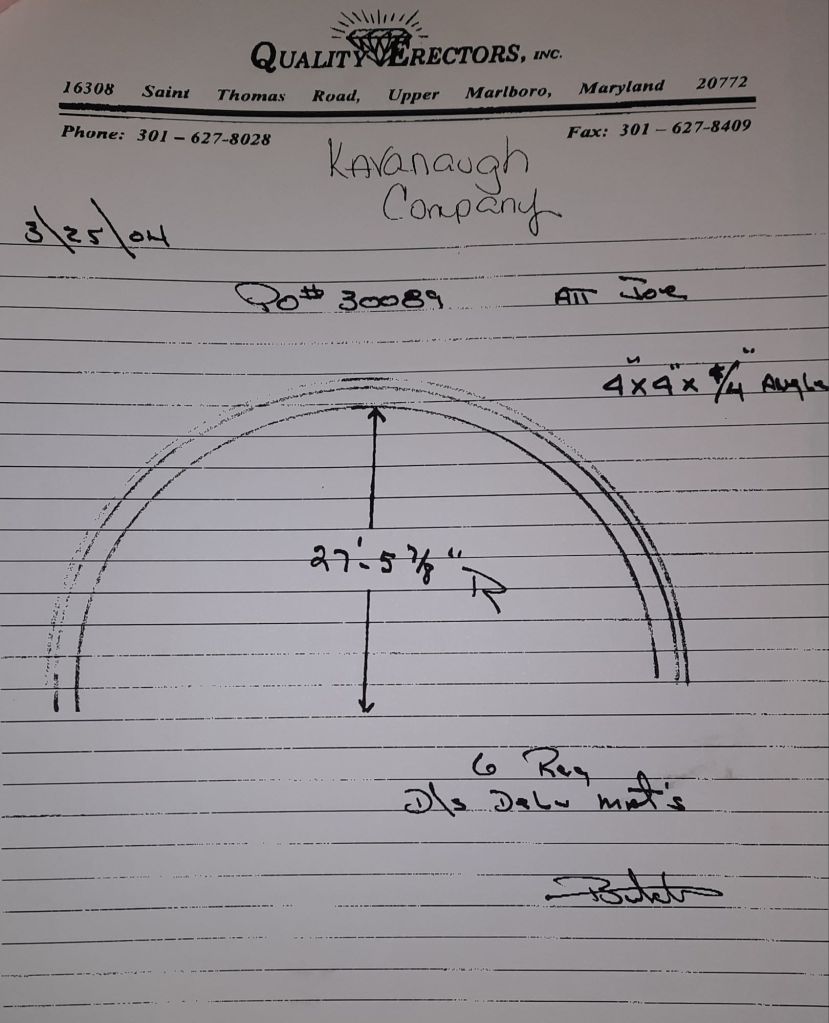 QUALITY ERECTORS, INC.
16308 Saint Thomas Road, Upper Marlboro, Maryland 20772
Phone: 301 – 627-8028 Fax: 301 – 627-8409
Kavanaugh
Company
3\25\04
PO# 30089 Att Joe
4"x4"x /4" Angle
27'-5 7/8" R
6 Req
mat's